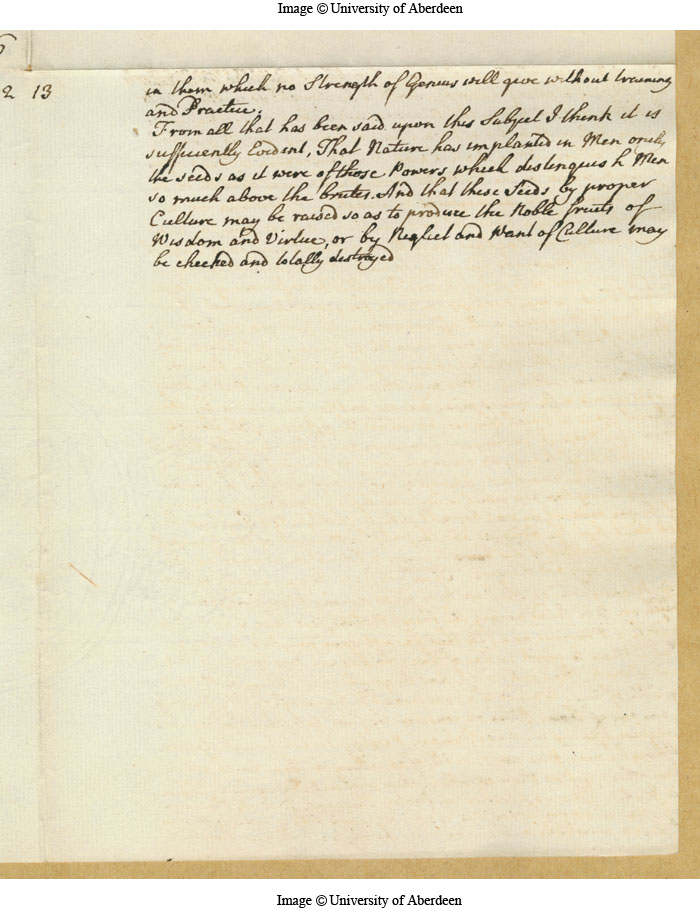 Image © University of Aberdeen
2 13
in them which no Strength of Genius will give without training
and Practice.
From all that has been said upon this Subject I think it is
sufficiently Evident, That Nature has implanted in Men only
the seeds as it were of those Powers which distinguish Men
so much above the brutes. And that these Seeds by proper
Culture may be raised so as to produce the Noble fruits of
Wisdom and Virtue, or by Neglect and Want of Culture may
be checked and totally destroyed
Image © University of Aberdeen